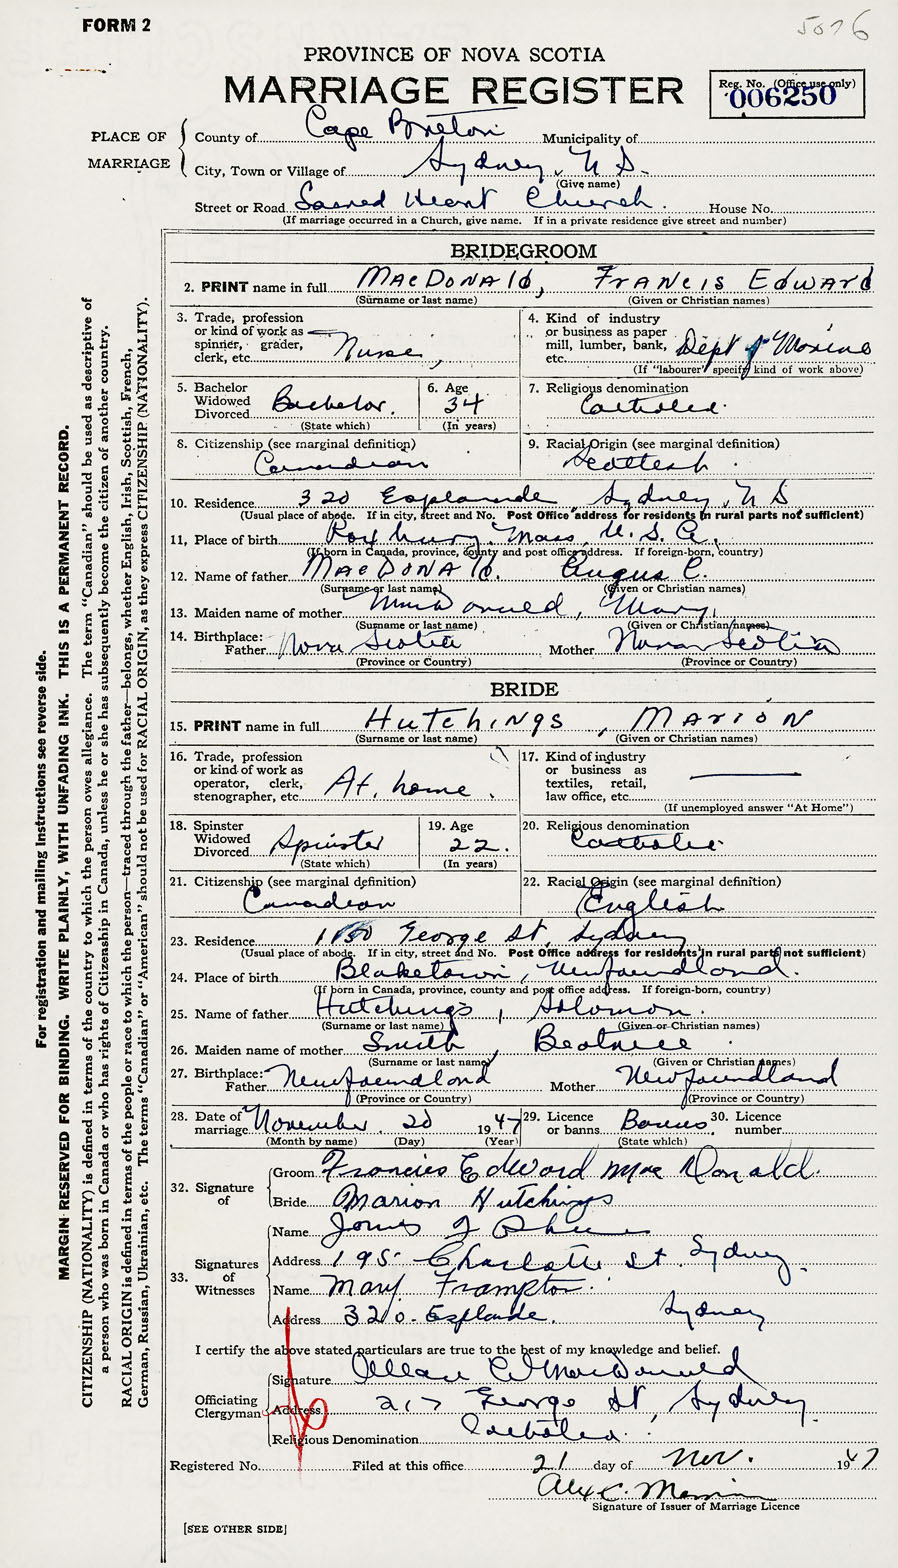 FORM 2
5076
PROVINCE OF NOVA SCOTIA
MARRIAGE REGISTER
Reg. No. (Office use only)
006250
PLACE OF MARRIAGE
County of Cape Breton Municipality of
City, Town or Village of Sydney, N S.
(Give name)
Street or Road Sacred Heart Church. House No.
(If marriage occurred in a Church, give name. If in a private residence give street and number)
BRIDEGROOM
2. PRINT name in full MacDonald, Francis Edward
(Surname or last name) (Given or Christian names)
3. Trade, profession or kind of work as spinner, grader, clerk, etc. Nurse,
4. Kind of industry or business as paper mill, lumber, bank, etc. Dept of Marine
(If "labourer" specify kind of work above)
5. Bachelor Widowed Divorced Bachelor.
(State which)
6. Age 34
(In years)
7. Religious denomination Catholic.
8. Citizenship (see marginal definition) Canadian
9. Racial Origin (see marginal definition) Scottish.
10. Residence 320 Esplanade Sydney, N S
(Usual place of abode. If in city, street and No. Post Office address for residents in rural parts not sufficient)
11, Place of birth Roxbury. Mass, U. S. A.
(If born in Canada, province, county and post office address. If foreign-born, country)
12. Name of father MacDonald. Angus C.
(Surname or last name) (Given or Christian names)
13. Maiden name of mother MacDonald, Mary,
(Surname or last name) (Given or Christian names)
14. Birthplace: Father Nova Scotia Mother Nova Scotia
(Province or Country) (Province or Country)
BRIDE
15. PRINT name in full Hutchings, Marion
(Surname or last name) (Given or Christian names)
16. Trade, profession or kind of work as operator, clerk, stenographer, etc. At home.
17. Kind of industry or business as textiles, retail, law office, etc.
(If unemployed answer "At Home")
18. Spinster Widowed Divorced Spinster
(State which)
19. Age 22.
(In years)
20. Religious denomination Catholic.
21. Citizenship (see marginal definition) Canadian
22. Racial Origin (see marginal definition) English
23. Residence George St, Sydney
(Usual place of abode. If in city, street and No. Post Office address for residents in rural parts not sufficient)
24. Place of birth Blaketown, Newfoundland.
(If born in Canada, province, county and post office address. If foreign-born, country)
25. Name of father Hutchings, Solomon.
(Surname or last name) (Given or Christian names)
26. Maiden name of mother Smith, Beatrice.
(Surname or last name) (Given or Christian names)
27. Birthplace: Father Newfoundland Mother Newfoundland
(Province or Country) (Province or Country)
28. Date of marriage November. 20 1947
(Month by name) (Day) (Year)
29. Licence or banns Banns.
(State which)
30. Licence number
32. Signature of
Groom Francis Edward MacDonald.
Bride Marion Hutchings
33. Signatures of Witnesses
Name James J
Address 195 Charlotte St. Sydney.
Name Mary Frampton.
Address 320 - Esplande. Sydney
I certify the above stated particulars are true to the best of my knowledge and belief.
Officiating Clergyman
Signature MacDonald
Address 217 George St, Sydney.
Religious Denomination Catholic.
Registered No. Filed at this office 21 day of Nov. 1947
Alex C.
Signature of Issuer of Marriage Licence
[SEE OTHER SIDE]
For registration and mailing instructions see reverse side.
MARGIN RESERVED FOR BINDING. WRITE PLAINLY, WITH UNFADING INK. THIS IS A PERMANENT RECORD.
CITIZENSHIP (NATIONALITY) is defined in terms of the country to which the person owes allegiance. The term "Canadian" should be used as descriptive of
a person who was born in Canada or who has rights of Citizenship in Canada, unless he or she has subsequently become the citizen of another country.
RACIAL ORIGIN is defined in terms of the people or race to which the person—traced through the father—belongs, whether English, Irish, Scottish, French,
German, Russian, Ukrainian, etc. The terms "Canadian" or "American" should not be used for RACIAL ORIGIN, as they express CITIZENSHIP (NATIONALITY).